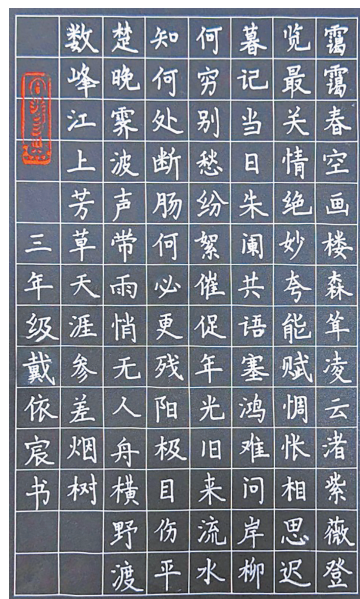 霭霭春空画楼森耸凌云渚紫薇登
览最关情绝妙夸能赋惆怅相思迟
暮记当日朱阑共语塞鸿难问岸柳
何穷别愁纷絮催促年光旧来流水
知何处断肠何必更残阳极目伤平
楚晚霁波声带雨悄无人舟横野渡
数峰江上芳草天涯参差烟树
三年级戴依宸书